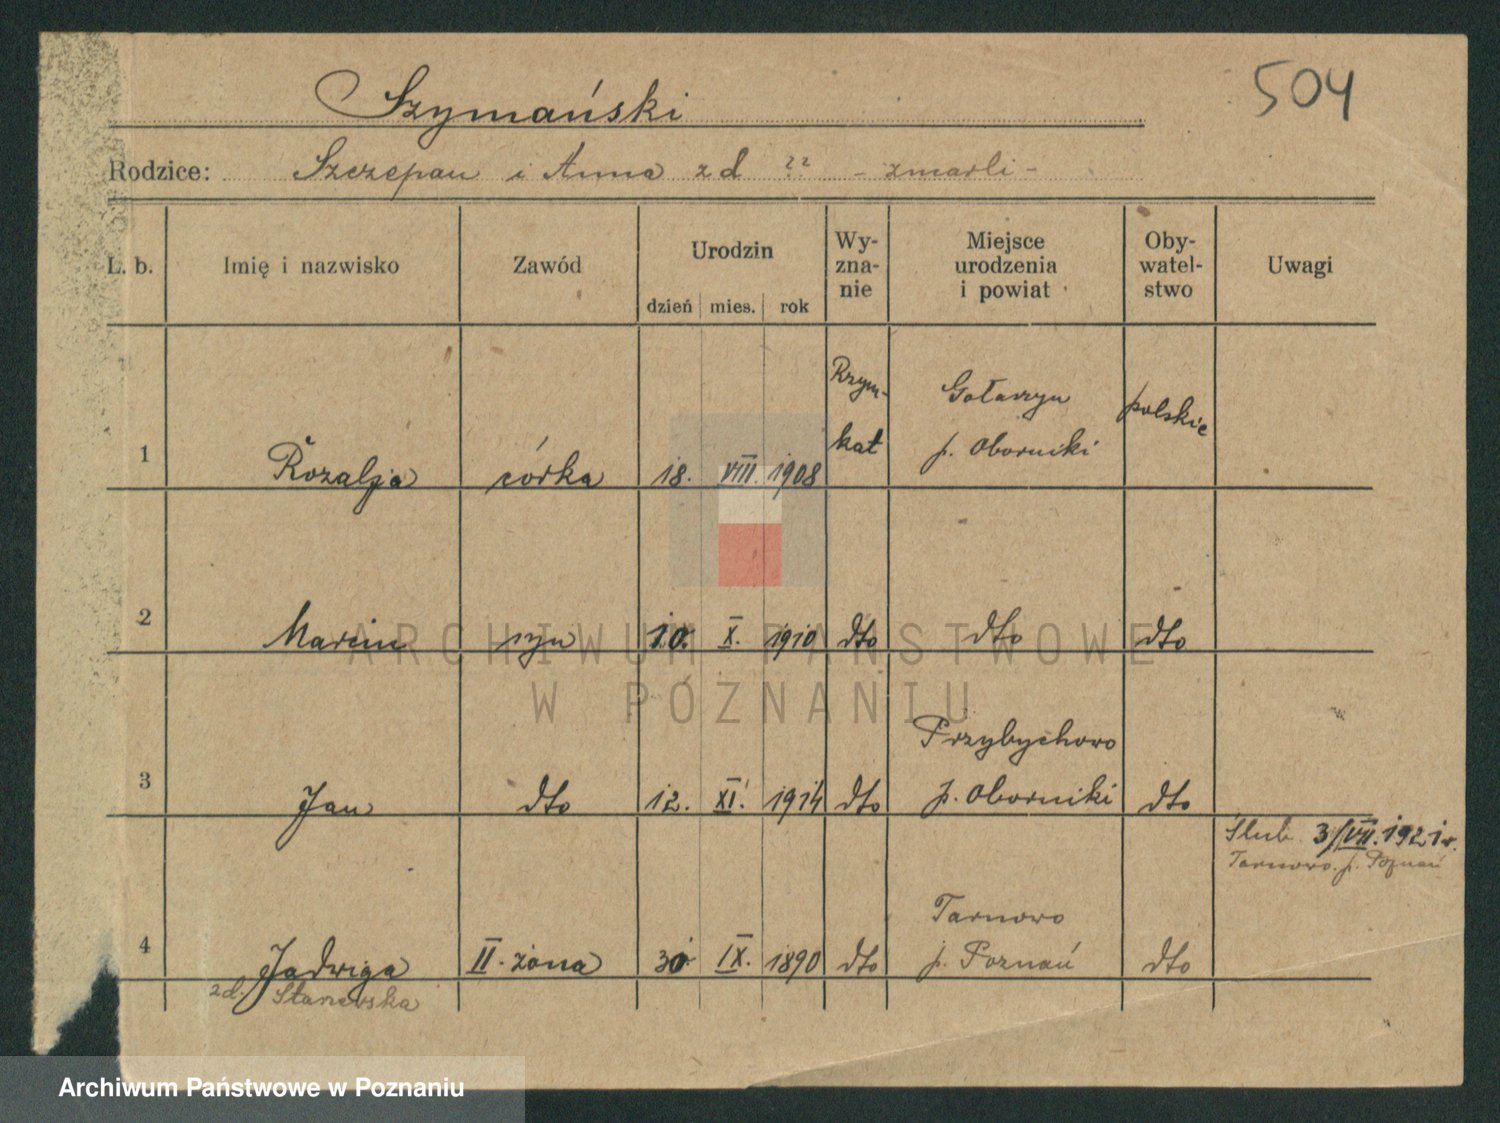 504
Szymański
Rodzice: Szczepan i Anna zd ?? - zmarli -
L. b. Imię i nazwisko Zawód Urodzin dzień mies. rok Wy-zna-nie Miejsce urodzenia i powiat Oby-watel-stwo Uwagi
1 Rozalja córka 18. VIII. 1908 Rzym-kat Gołaszyn p. Oborniki polskie
2 Marcin syn 10. X. 1910 dto dto dto
3 Jan dto 12. XI. 1914 dto Przybychowo p. Oborniki dto
Ślub 3/VII. 1921 r.
Tarnowo p. Poznań
4 Jadwiga II. żona 30 IX. 1890 dto Tarnowo p. Poznań dto
zd.
ARCHIWUM PAŃSTWOWE
W POZNANIU
Archiwum Państwowe w Poznaniu